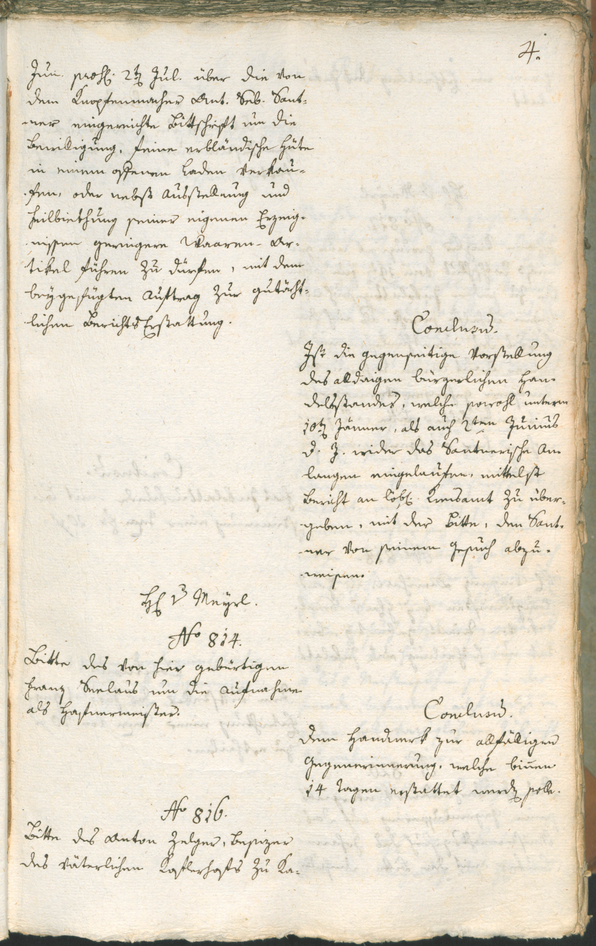 4.
Jun. prs. 2t Jul. über die von
dem Knopfenmacher Ant. Seb. Sant-
ner eingereichte Bittschrift um die
Bewilligung, seine erbländische Hüte
in einem offenen Laden verkau-
fen, oder nebst Ausstellung und
Feilbiethung seiner eigenen Erzeug-
nissen geringere Waaren-Ar-
tikel führen zu dürfen, mit dem
beygefügten Auftrag zur gutächt-
lichen BerichtsErstattung.
Conclusum.
Ist die gegenseitige Vorstellung
des alldaigen bürgerlichen Han-
delsstandes, welche sowohl unterm
10t Jänner, als auch 2ten Junius
d. J. wider das Santnerische An-
langen eingelaufen, mittelst
Bericht an löbl. Kreisamt zu über-
geben, mit der Bitte, den Sant-
ner von seinem Gesuch abzu-
weisen.
H v Meyrl.
No 814.
Bitte des von hier gebürtigen
Franz um die Aufnahme
als Hafnermeister.
Conclusum.
Dem Handwerk zur allfälligen
Gegenerinnerung, welche binnen
14 Tagen erstattet werden solle.
No 816.
Bitte des Anton Zelger, Besizer
des väterlichen zu Ka-